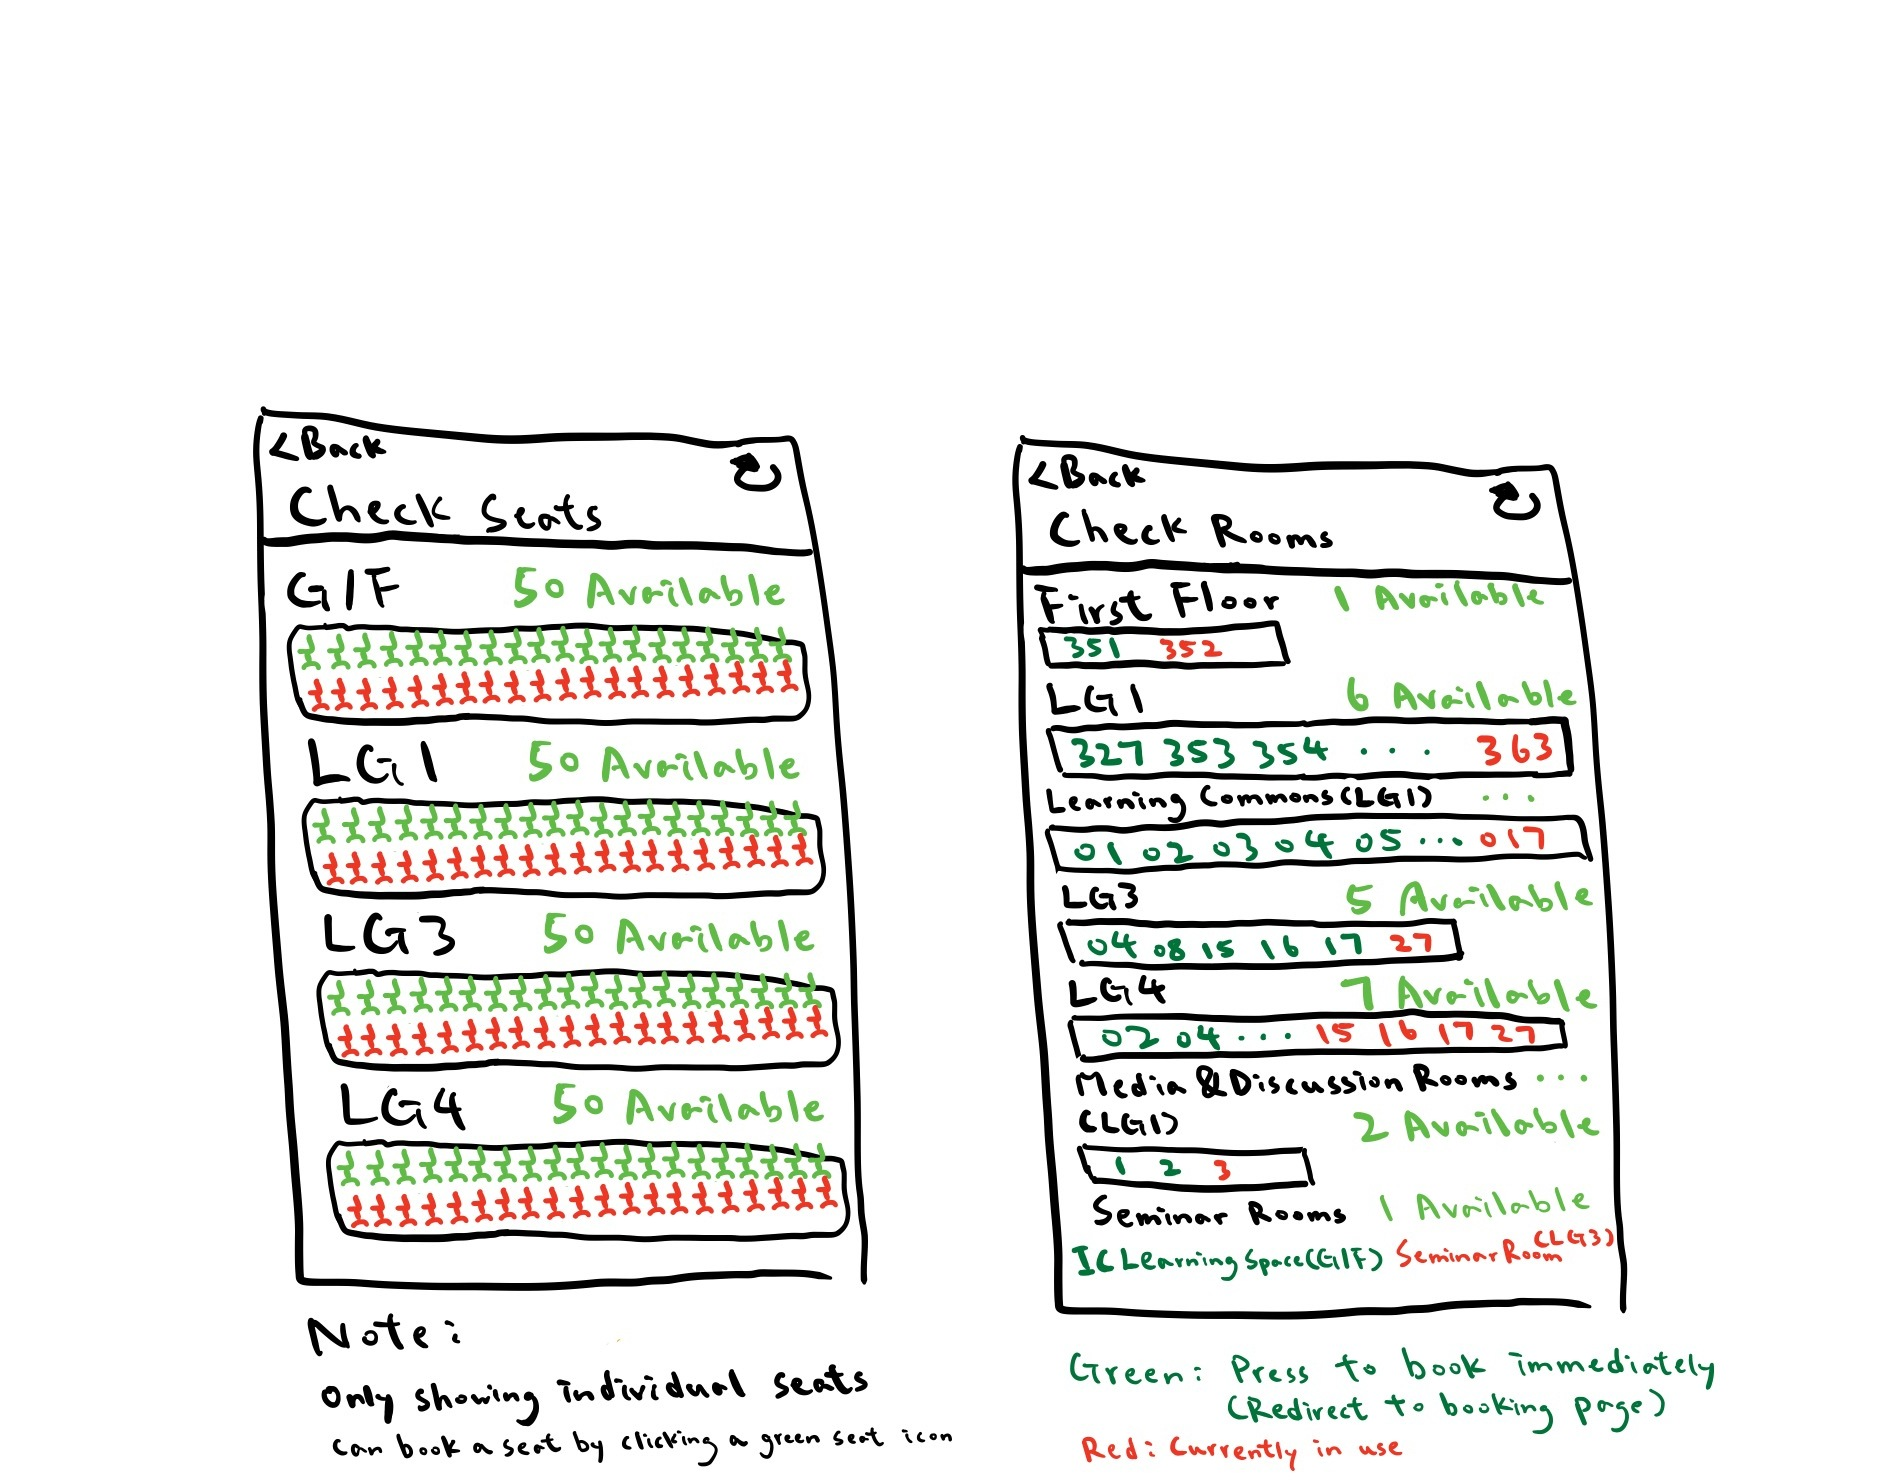 <Back
Check Seats
G/F 50 Available
LG1 50 Available
LG3 50 Available
LG4 50 Available
Note:
Only showing individual seats
can book a seat by clicking a green seat icon
<Back
Check Rooms
First Floor 1 Available
351 352
LG1 6 Available
327 353 354 ... 363
Learning Commons(LG1) ...
01 02 03 04 05 ... 017
LG3 5 Available
04 08 15 16 17 27
LG4 7 Available
02 04 ... 15 16 17 27
Media & Discussion Rooms ...
(LG1) 2 Available
1 2 3
Seminar Rooms 1 Available
IC Learning Space(G/F) Seminar Room (LG3)
Green: Press to book immediately
(Redirect to booking page)
Red: Currently in use